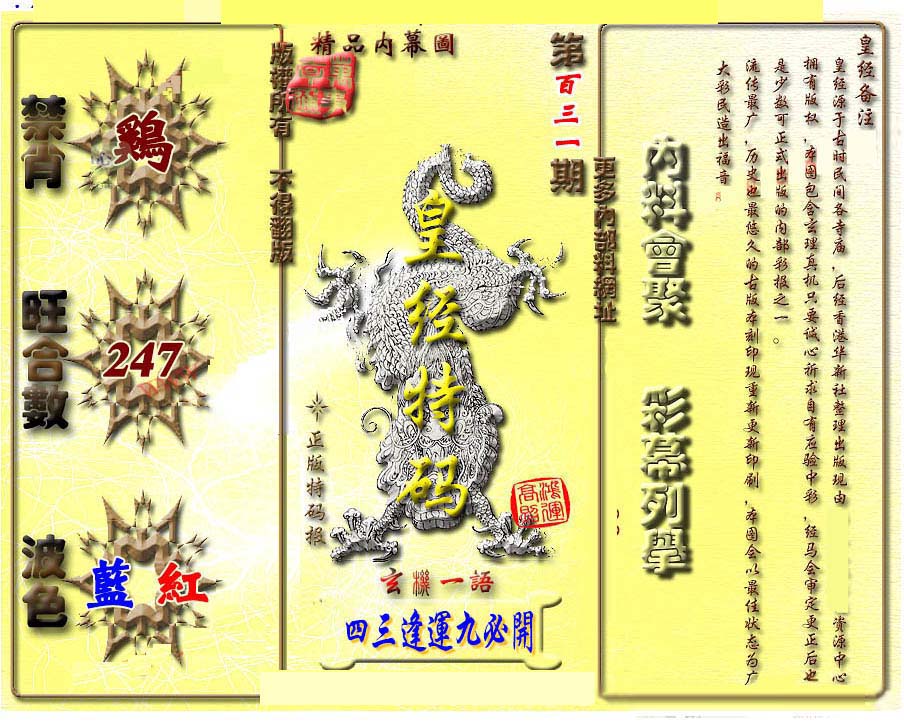 皇经备注
皇经源于古时民间各寺庙，后经香港华新社整理出版现由 资源中心
拥有版权，本图包含玄理真机只要诚心祈求自有应验中彩，经马会审定更正后也
是少数可正式出版的内部彩报之一。
流传最广，历史也最悠久的古版本刻印现重新更新印刷，本图会以最佳状态为广
大彩民造出福音
内料會聚 彩幕列舉
更多內部料網址
第百三一期
精品内幕圖
皇经特码
正版特码报
鴻運
高照
玄機一語
四三逢運九必開
版權所有 不得翻版
禁肖
鷄
旺合數
247
波色
藍 紅